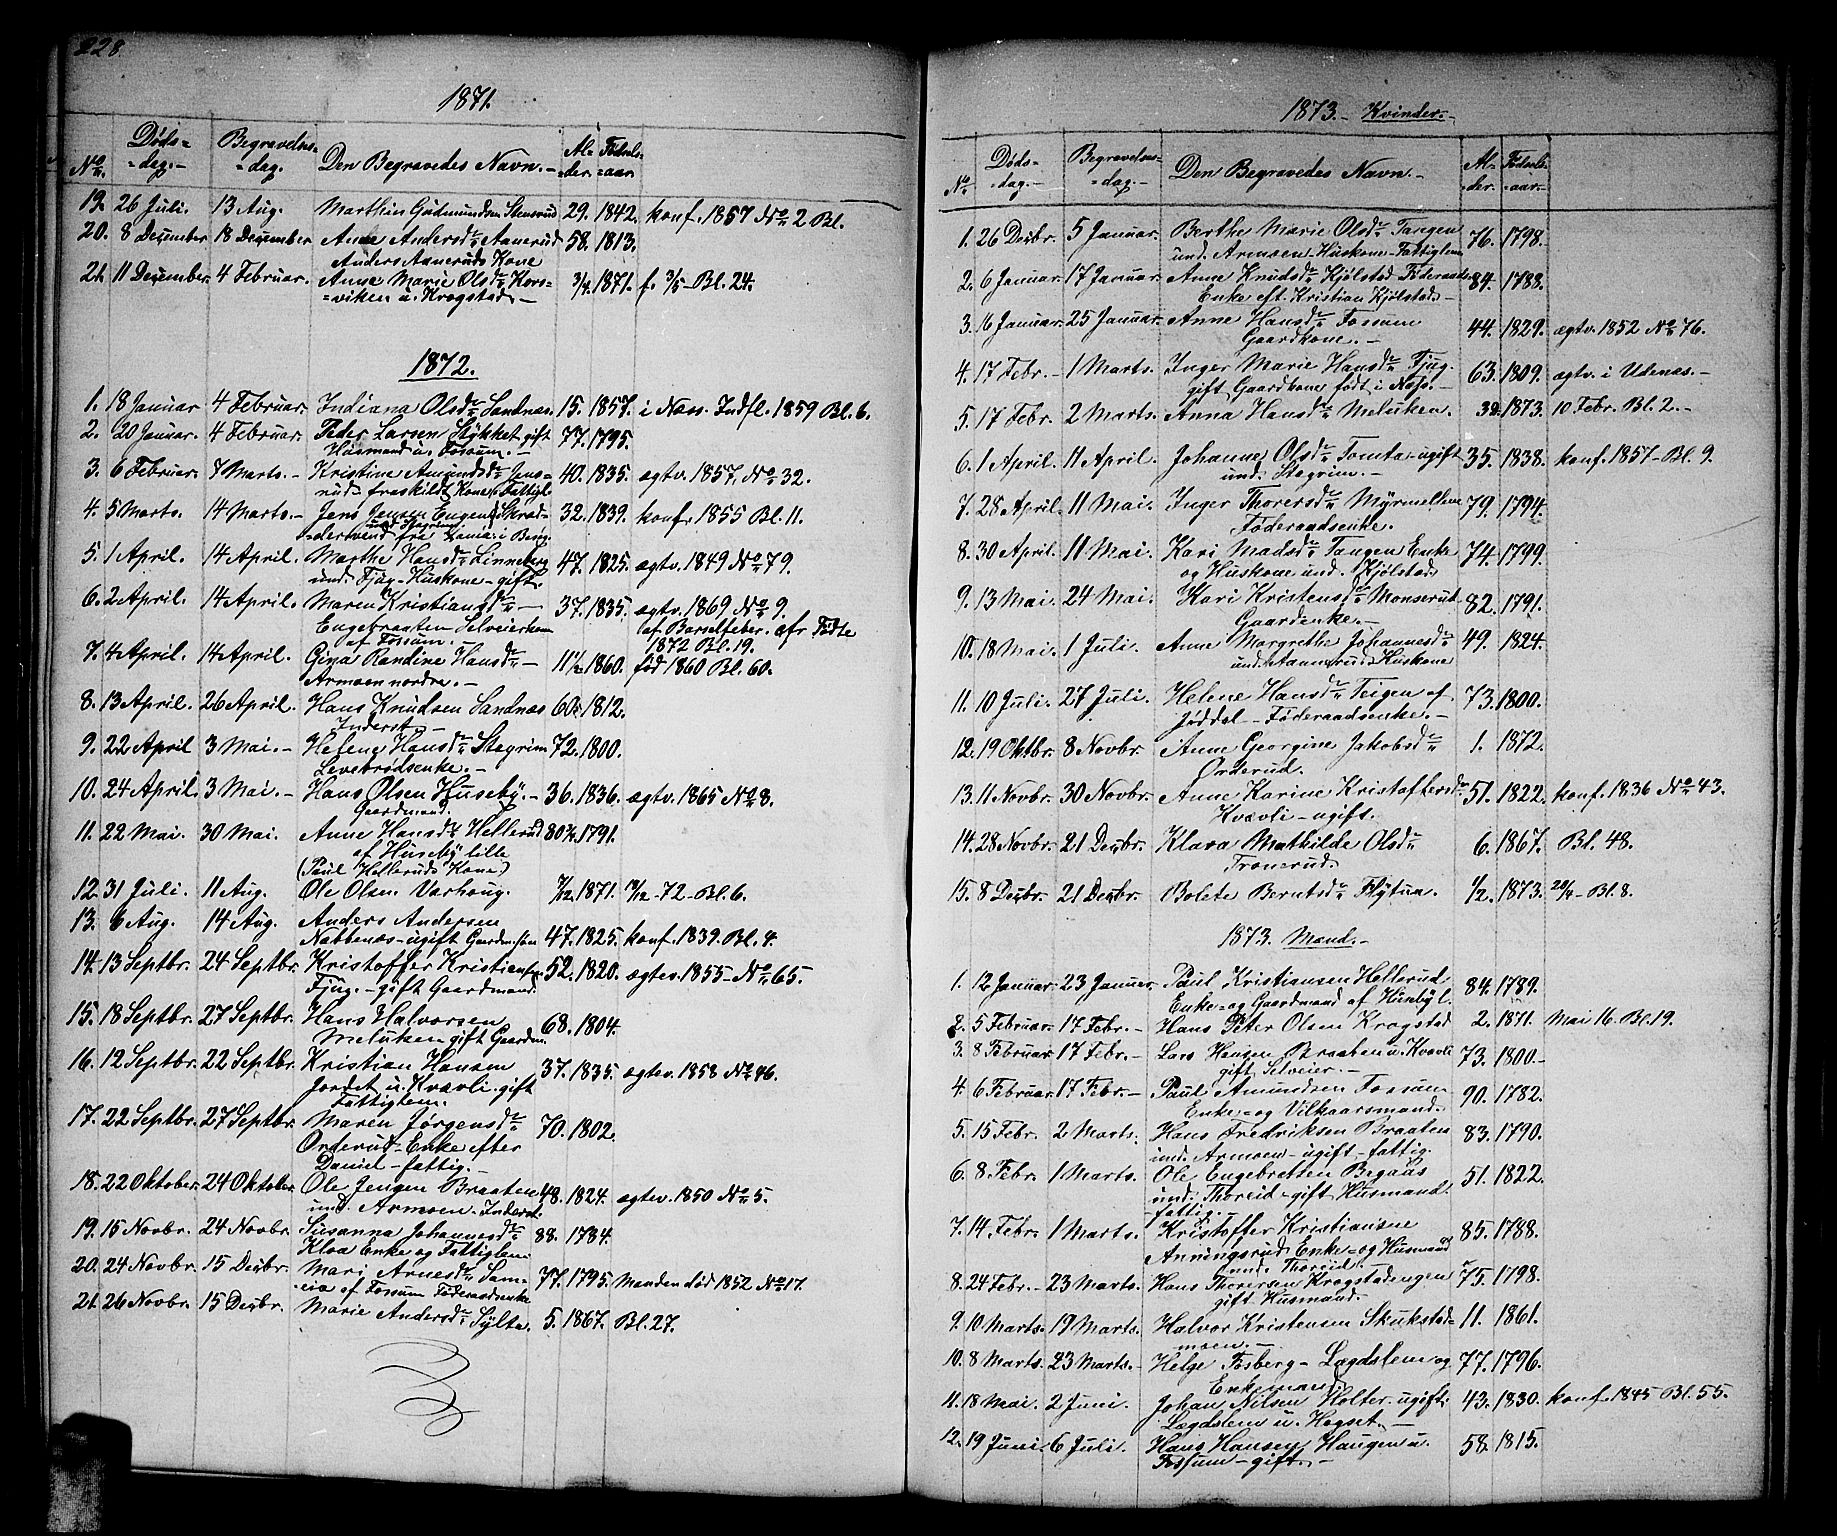 228.
1871.
No. Døds-dag. Begravelses-dag. Den Begravedes Navn. Al-der. Fødsels-aar.
19. 26 Juli. 13 Aug. Marthin Gudmundsen Stensrud 29. 1842. konf. 1857 No 2 Bl.
20. 8 December 18 December Anne Andersdr Aanerud 58. 1813.
Anders Aaneruds Kone
21. 11 December. 4 Februar. Anne Marie Olsdr Kors- 3/4. 1871. f. 3/5 Bl. 24.
=viken u. Krogstad.
1872.
1. 18 Januar 4 Februar. Indiana Olsdr Sandnæs. 15. 1857. i Næss. Indfl. 1859 Bl. 6.
2. 20 Januar. 4 Februar. Peder Larsen Stykket gift 77. 1795.
Husmand u. Fossum.
3. 6 Februar. 7 Marts. Kristine Amundsdr Jens- 40. 1835. ægtv. 1857, No 32.
rud fraskildt Kone, Fattigl
4. 5 Marts. 14 Marts. Jens Jensen Engen Skræd- 32. 1839. konf. 1855 Bl. 11.
und Stegrim
=dersvend fra
5. 1 April. 14 April. Marthe Hansdr Linneberg 47. 1825. ægtv. 1849 No 79.
und. Fjug-Huskone-gift.
6. 2 April. 14 April. Maren Kristiansdr 37. 1835. ægtv. 1869 No 9.
Engebraaten Selveierkone af Barselfeber. cfr Fødte
af Fossum. 1872 Bl. 19.
7. 4 April. 14 April. Gina Randine Hansdr 11 1/2 1860. fød 1860 Bl. 60.
Armoen nordre.
8. 13 April. 26 April. Hans Knudsen Sandnæs 60. 1812.
Inderst
9. 22 April 3 Mai. Helene Hansdr Stegrim 72. 1800.
Levebrødsenke.
10. 24 April. 3 Mai. Hans Olsen Huseby. 36. 1836. ægtv. 1865 No 8.
Gaardmand.
11. 22 Mai. 30 Mai. Anne Hansdr Hellerud 80 1791.
af Huseby lille
(Paul Helleruds Kone)
12. 31 Juli. 11 Aug. Ole Olsen Varhoug. 7/12 1871. 72 - Bl. 6.
13. 6 Aug. 14 Aug. Anders Andersen
Nabbenæs-ugift Gaardm.søn 47. 1825. konf. 1839. Bl. 4.
14. 13 Septbr. 24 Septbr. Kristoffer Kristiansen 52. 1820. ægtev. 1855 - No 65.
Fjug. - gift Gaardmand.
15. 18 Septbr. 27 Septbr. Hans Halvorsen 68. 1804.
Meluken gift Gaardm.
16. 12 Septbr. 22 Septbr. Kristian Hansen 37. 1835. ægtev. 1858 No 46.
Jordet u. Kvævli. gift
Fattiglem.
17. 22 Septbr. 27 Septbr. Maren Jørgensdr 70. 1802.
Orderud-Enke efter
Daniel-fattig.
18. 22 Oktober. 24 Oktober. Ole Jensen Braaten 48. 1824. ægtev. 1850 No 5.
und. Armoen. Inderst.
19. 15 Novbr. 24 Novbr. Susanna Johannesdr 88. 1784.
Kloa Enke og Fattiglem.
20. 24 Novbr. 15 Decbr. Mari Arnesdr Sam- 77. 1795. Manden død 1852 No 17.
eia af Fossum Føderaadsenke
21. 26 Novbr. 15 Decbr. Marie Andersdr Sylte. 5. 1867. Bl. 27.
1873. - Kvinder. -
No Døds-dag. Begravelses-dag. Den Begravedes Navn. Al-der. Fødsels-aar.
1. 26 Decbr. 5 Januar. Berthe Marie Olsdr Tangen 76. 1798.
und. Armoen. Huskone. Fattiglem
2. 6 Januar. 17 Januar. Anne Knudsdr Kjølstad Føderaads 84. 1788.
Enke eft. Kristian Kjølstad.
3. 16 Januar. 25 Januar. Anne Hansdr Fossum 44. 1829. ægtv. 1852 No 76.
Gaardkone.
4. 17 Febr. 1 Marts. Inger Marie Hansdr Fjug 63. 1809. ægtv. i Udenæs.
gift Gaardkone født i Næs.
5. 17 Febr. 2 Marts. Anna Hansdr Meluken. 1873. 10 Febr. Bl. 2.
6. 1 April. 11 April. Johanne Olsdr Tomta ugift 35. 1838. konf. 1857 - Bl. 9.
und. Stegrim.
7. 28 April. 11 Mai. Inger Thorersdr Myrmellem 79. 1794.
Føderaadsenke.
8. 30 April. 11 Mai. Kari Madsdr Tangen Enke 74. 1799.
og Huskone und. Kjølstad.
9. 13 Mai. 24 Mai. Kari Kristensdr Monserud 82. 1791.
Gaardenke.
10. 18 Mai. 1 Juli. Anne Margrethe Johannesdr 49. 1824.
und. Aannerud. Huskone
11. 10 Juli. 27 Juli. Helene Hansdr Teigen af 73. 1800.
Jøddal - Føderaadsenke.
12. 19 Oktbr. 8 Novbr. Anne Georgine Jakobsdr 1. 1872.
Orderud.
13. 11 Novbr. 30 Novbr. Anne Karine Kristoffersdr. 51. 1822. konf. 1836 No 43.
Kvævli - ugift.
14. 28 Novbr. 21 Decbr. Klara Mathilde Olsdr 6. 1867. Bl. 48.
Tronerud.
15. 8 Decbr. 21 Decbr. Bolete Berntsdr Flytua. 1/2. 1873. 20/4 - Bl. 8.
1873. Mænd.
1. 12 Januar. 23 Januar. Paul Kristiansen Hellerud 84. 1789.
Enke- og Gaardmand af Huseby l.
2. 5 Februar. 17 Febr. Hans Peter Olsen Krogstad 2. 1871. Mai 16. Bl. 19.
3. 8 Februar. 17 Febr. Lars Hansen Braaten u. Kvævli 73. 1800.
gift Selveier.
4. 6 Februar. 17 Febr. Paul Amundsen Fossum 90. 1782.
Enke- og Vilkaarsmand.
5. 15 Febr. 2 Marts. Hans Fredriksen Braaten 83. 1790.
und. Armoen - ugift - fattig.
6. 8. Febr. 1 Marts. Ole Engebretsen Begaas 51. 1822.
und. Thoreid - gift Husmand.
fattig.
7. 14 Febr. 1 Marts. Kristoffer Kristiansen 85. 1788.
Anningsrud, Enke- og Husmand
und. Thoreid.
8. 24 Febr. 23 Marts. Hans Thorersen Krogstadengen 75. 1798.
gift Husmand.
9. 10 Marts. 19 Marts. Halvor Kristensen Skukstad- 11. 1861.
moen.
10. 8 Marts. 23 Marts. Helge Fosberg - Lægdslem og 77. 1796.
Enkemand
11. 18 Mai. 2 Juni. Johan Nilsen Holter. ugift. 43. 1830. konf. 1845 Bl. 55.
Lægdslem u. Hogset.
12. 19 Juni. 6 Juli. Hans Hansen Haugen u. 58. 1815.
Fossum - gift.